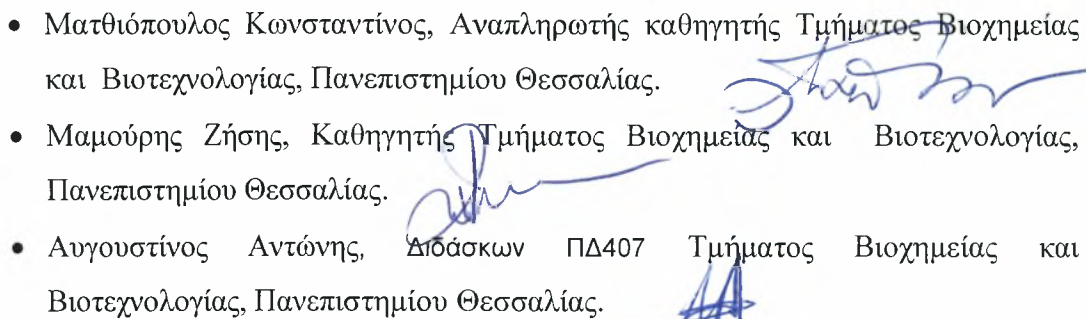 • Ματθιόπουλος Κωνσταντίνος, Αναπληρωτής καθηγητής Τμήματος Βιοχημείας
και Βιοτεχνολογίας, Πανεπιστημίου Θεσσαλίας.
• Μαμούρης Ζήσης, Καθηγητής Τμήματος Βιοχημείας και Βιοτεχνολογίας,
Πανεπιστημίου Θεσσαλίας.
• Αυγουστίνος Αντώνης, Διδάσκων ΠΔ407 Τμήματος Βιοχημείας και
Βιοτεχνολογίας, Πανεπιστημίου Θεσσαλίας.